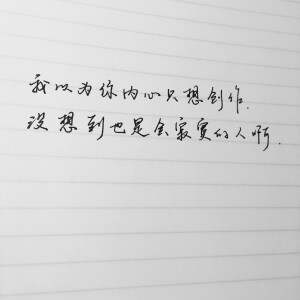 我以为你内心只想创作.
没想到也是会寂寞的人啊.